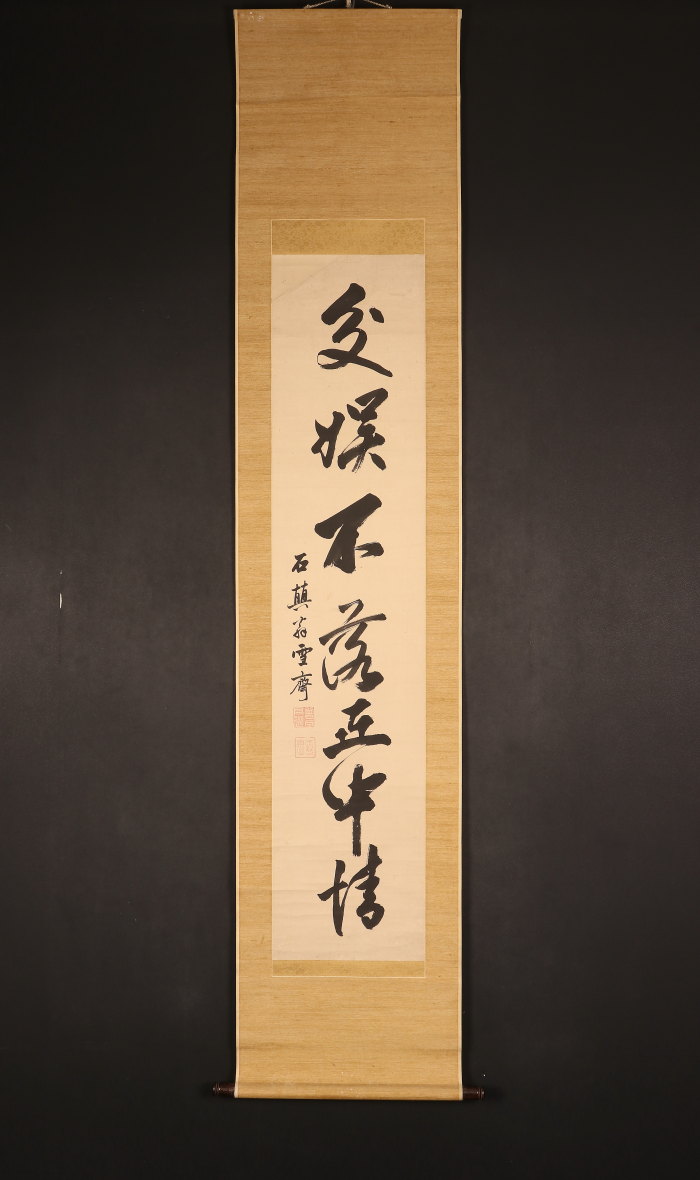 交娯不落世中情
石翁雪齋